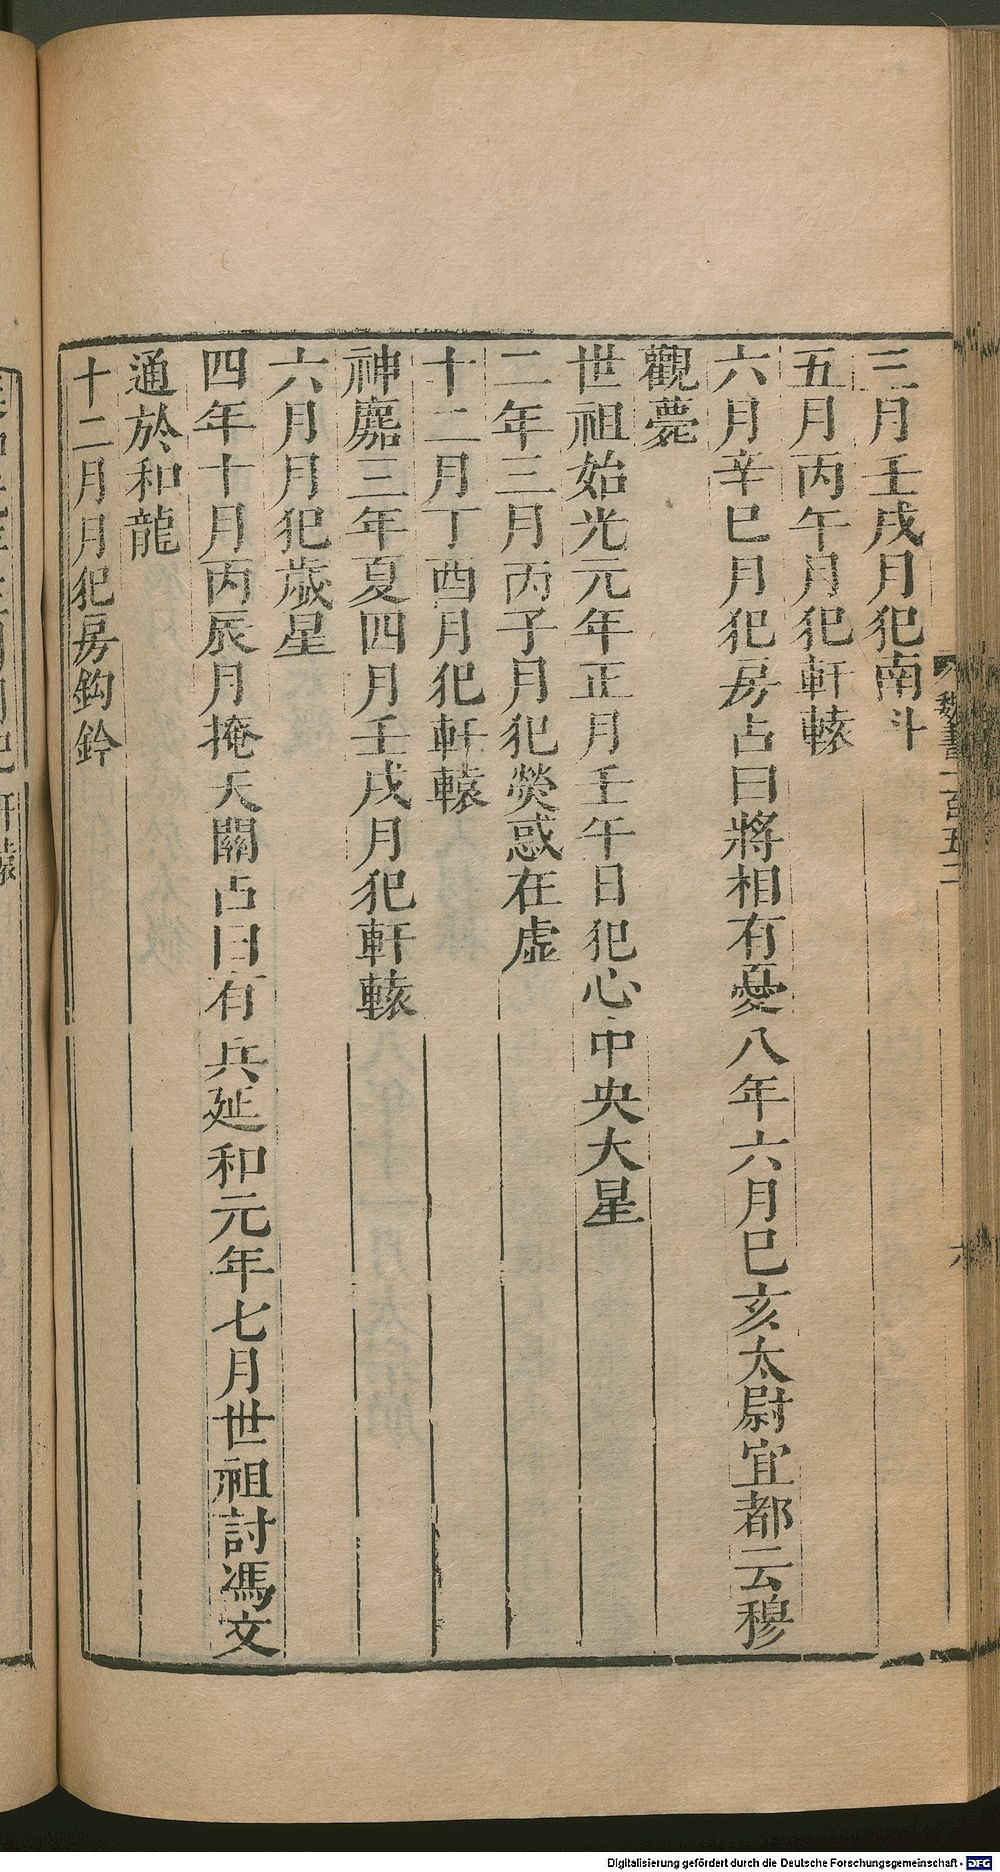 三月壬戌月犯南斗
五月丙午月犯軒轅
六月辛巳月犯房占曰將相有憂八年六月巳亥太尉宜都云穆
觀薨
世祖始光元年正月壬午日犯心中央大星
二年三月丙子月犯熒惑在虛
十二月丁酉月犯軒轅
神䴥三年夏四月壬戌月犯軒轅
六月月犯歲星
四年十月丙辰月掩天關占曰有兵延和元年七月世祖討馮文
通於和龍
十二月月犯房鈎鈐
魏書一百五二
六
Digitalisierung gefördert durch die Deutsche Forschungsgemeinschaft - DFG